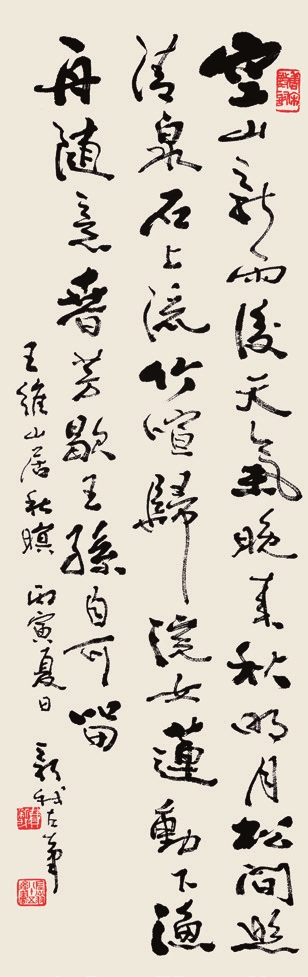 空山新雨後天氣晚來秋明月松間照
清泉石上流竹喧歸浣女蓮動下漁
舟隨意春芳歇王孫自可留
王維山居秋暝 丙寅夏日 新我左筆